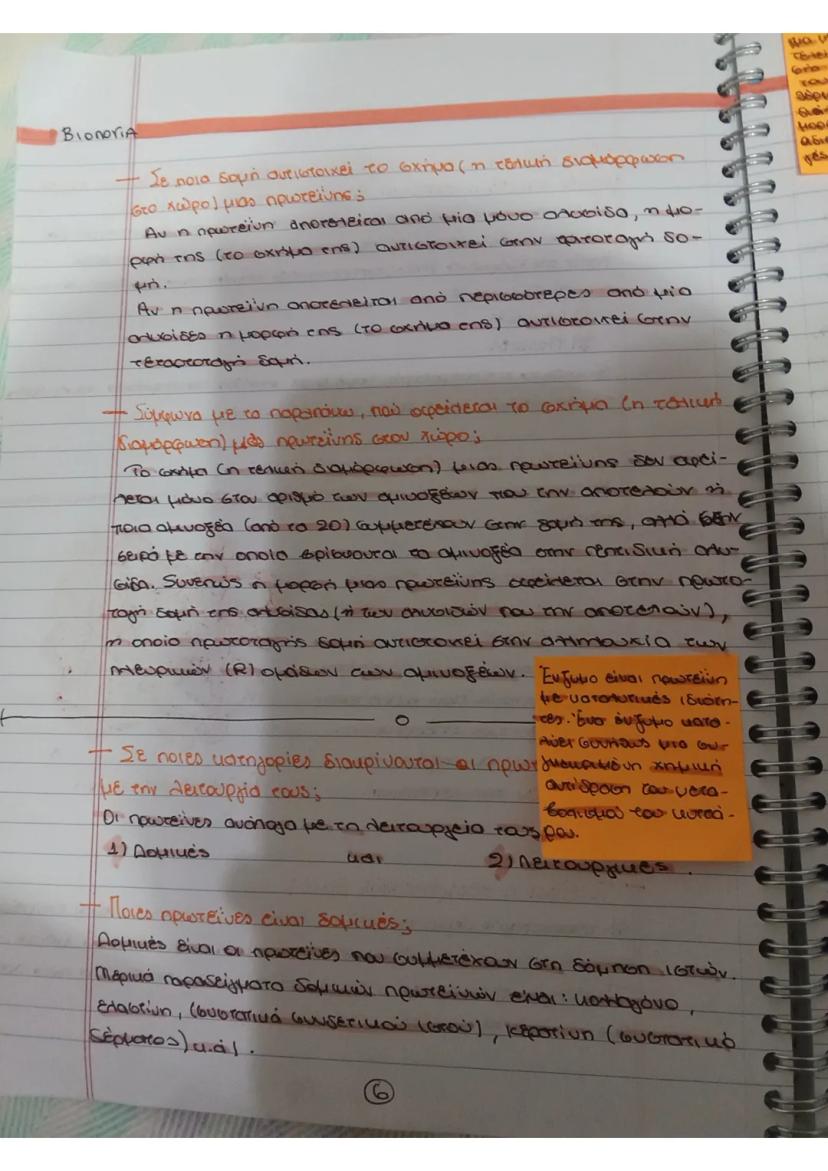 ΒΙΟΛΟΓΙΑ
– Σε ποια δομή αντιστοιχεί το σχήμα (η τελική διαμόρφωση
στο χώρο) μιας πρωτεΐνης;
Αν η πρωτεΐνη αποτελείται από μία μόνο αλυσίδα, η μο-
ρφή της (το σχήμα της) αντιστοιχεί στην τριτοταγή δο-
μή.
Αν η πρωτεΐνη αποτελείται από περισσότερες από μία
αλυσίδες η μορφή της (το σχήμα της) αντιστοιχεί στην
τεταρτοταγή δομή.
– Σύμφωνα με το παραπάνω, πού οφείλεται το σχήμα (η τελική
διαμόρφωση) μιας πρωτεΐνης στον χώρο;
Το σχήμα (η τελική διαμόρφωση) μιας πρωτεΐνης δεν οφεί-
λεται μόνο στον αριθμό των αμινοξέων που την αποτελούν ή
ποια αμινοξέα (από τα 20) συμμετέχουν στην δομή της, αλλά στην
σειρά με την οποία βρίσκονται τα αμινοξέα στην πεπτιδική αλυ-
σίδα. Συνεπώς η μορφή μιας πρωτεΐνης οφείλεται στην πρωτο-
ταγή δομή της αλυσίδας (ή των αλυσιδών που την αποτελούν),
η οποία πρωτοταγής δομή αντιστοιχεί στην αλληλουχία των
πλευρικών (R) ομάδων των αμινοξέων.
Ένζυμο είναι πρωτεΐνη
με καταλυτικές ιδιότη-
τες. Ένα ένζυμο κατα-
λύει συνήθως μια συ-
γκεκριμένη χημική
αντίδραση του μετα-
βολισμού του κυττά-
ρου.
– Σε ποιες κατηγορίες διακρίνονται οι πρωτ
με την λειτουργία τους;
Οι πρωτεΐνες ανάλογα με τη λειτουργεία τους
1) Δομικές και 2) Λειτουργικές.
– Ποιες πρωτεΐνες είναι δομικές;
Δομικές είναι οι πρωτεΐνες που συμμετέχουν στη δόμηση ιστών.
Μερικά παραδείγματα δομικών πρωτεϊνών είναι: κολλαγόνο,
ελαστίνη, (συστατικά συνδετικού ιστού), κερατίνη (συστατικό
δέρματος) κ.ά.
6